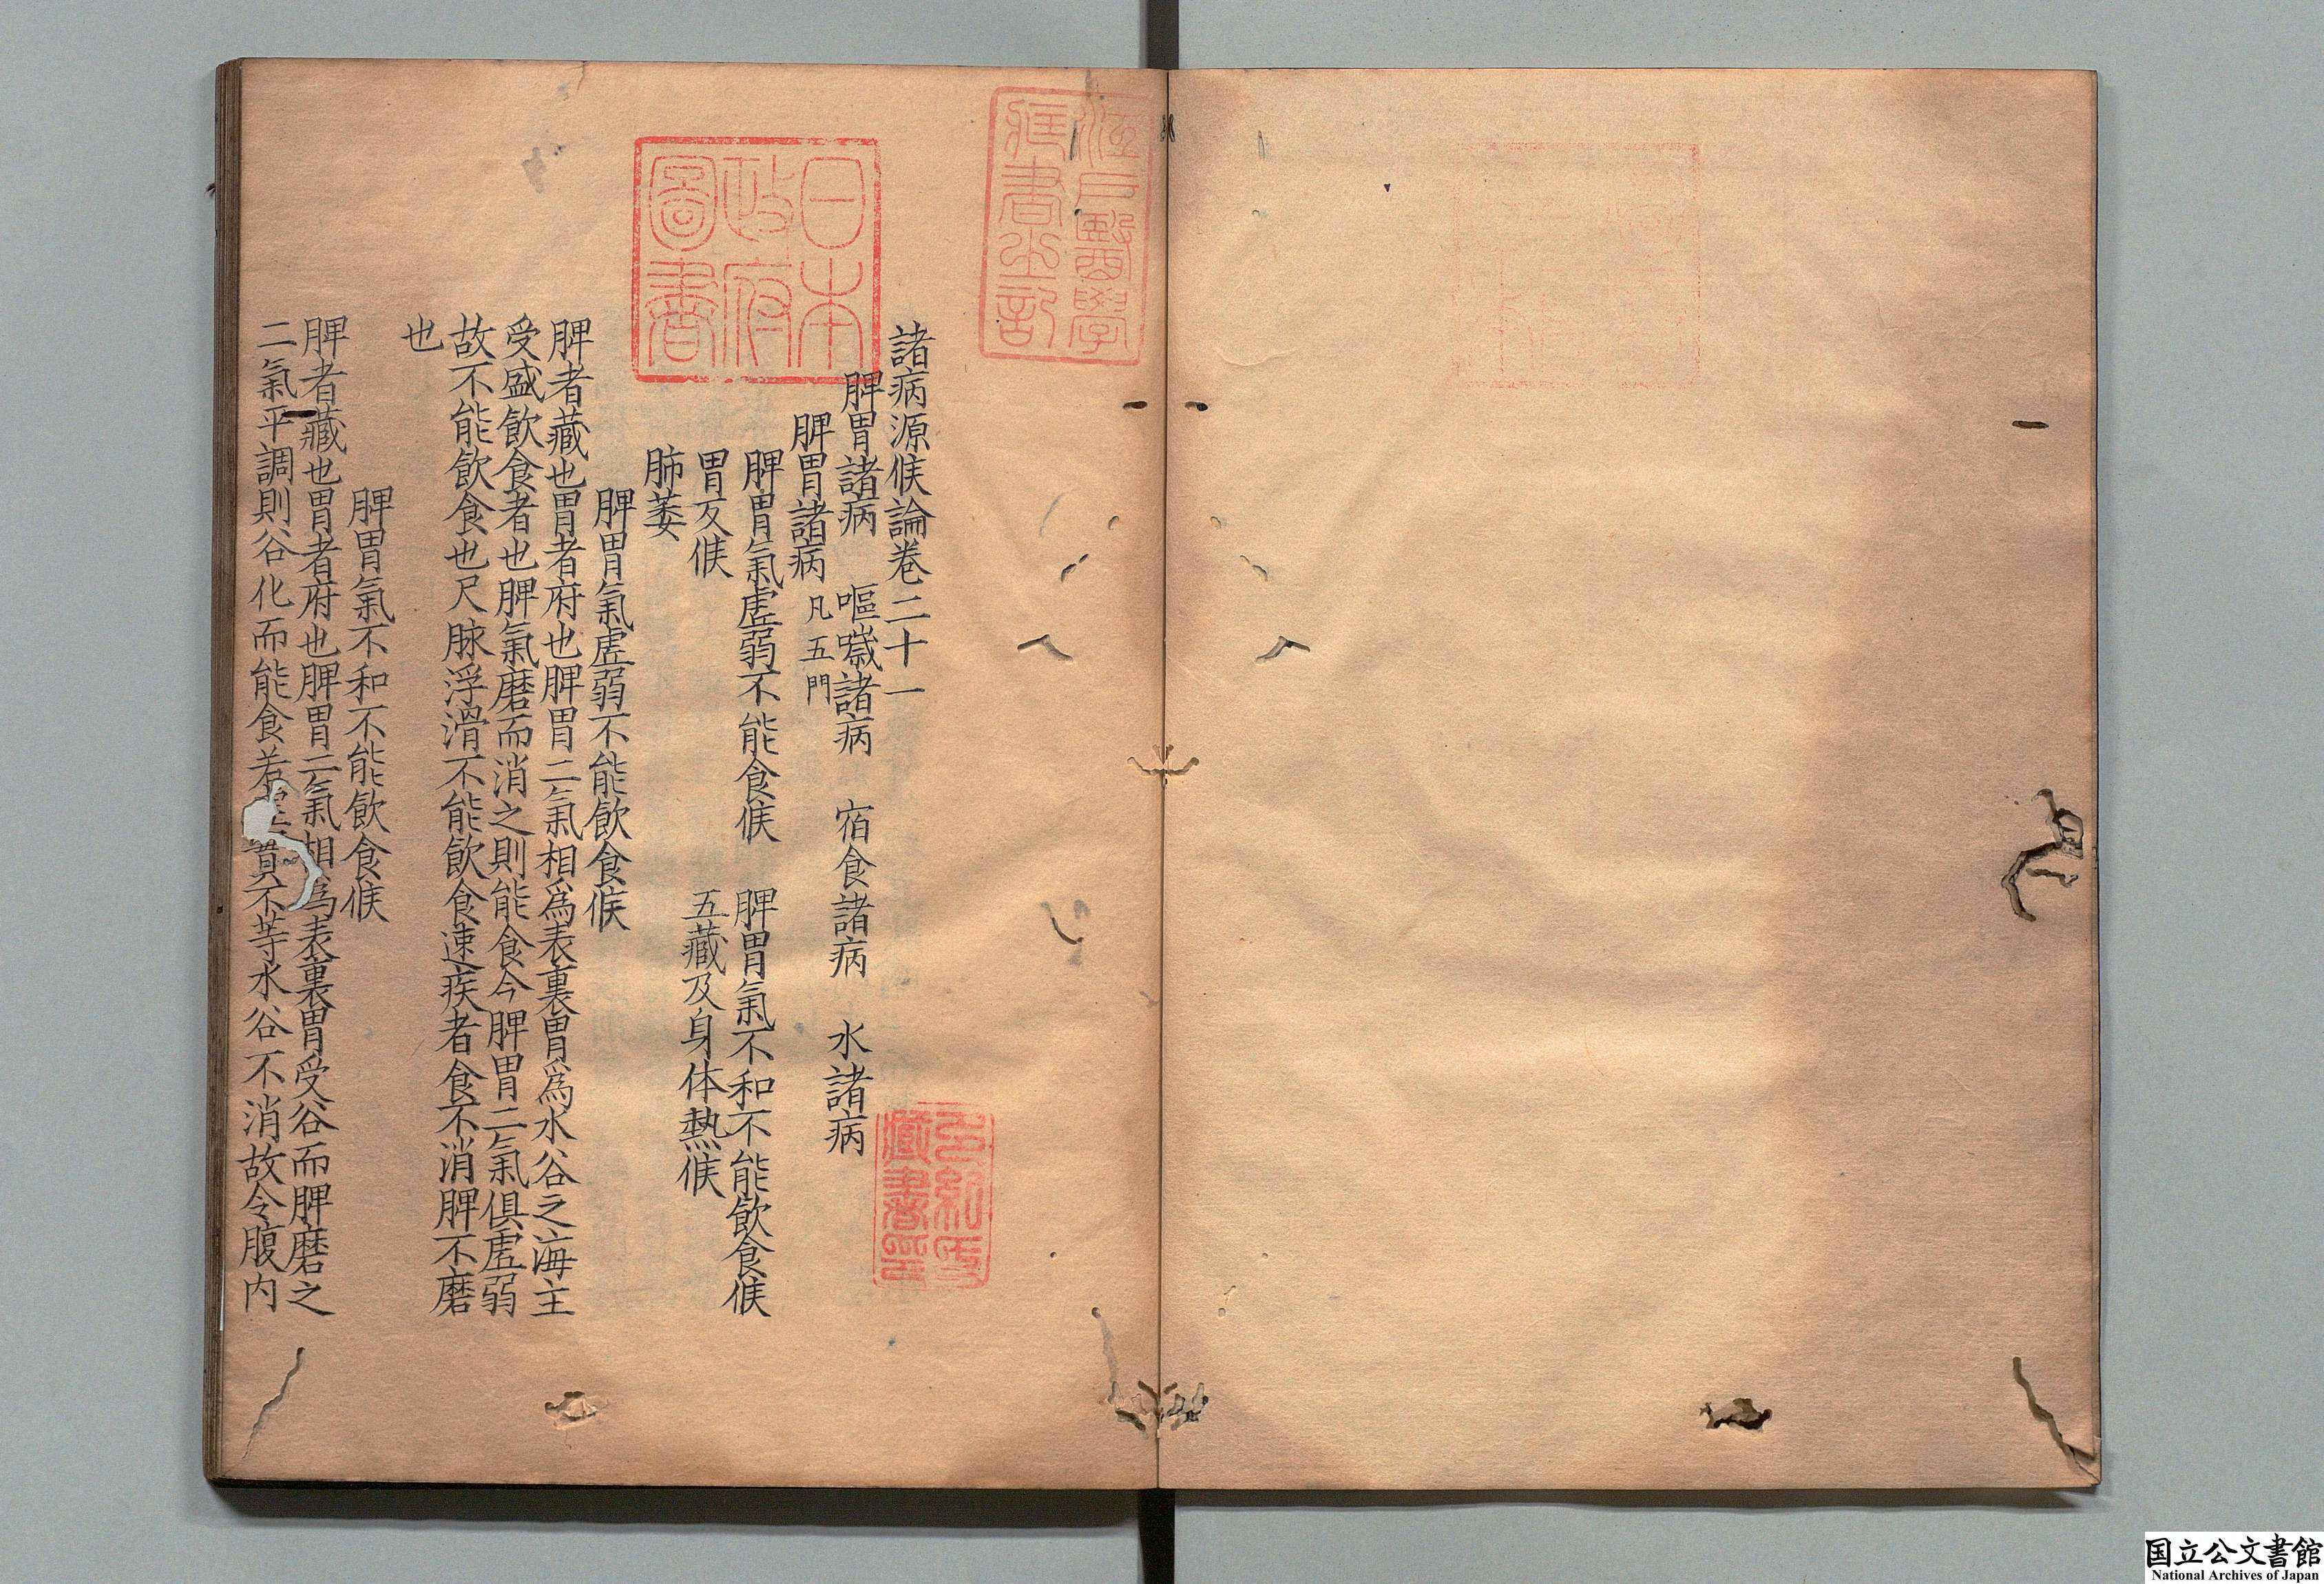 諸病源候論卷二十一
脾胃諸病　嘔噦諸病　宿食諸病　水諸病
脾胃諸病凡五門
脾胃氣虛弱不能食候　脾胃氣不和不能飲食候
胃反候　五藏及身体熱候
肺萎
脾胃氣虛弱不能飲食候
脾者藏也胃者府也脾胃二氣相爲表裏胃爲水谷之海主
受盛飲食者也脾氣磨而消之則能食今脾胃二氣俱虛弱
故不能飲食也尺脉浮滑不能飲食速疾者食不消脾不磨
也
脾胃氣不和不能飲食候
脾者藏也胃者府也脾胃二氣相爲表裏胃受谷而脾磨之
二氣平調則谷化而能食若虛實不等水谷不消故令腹内
日本
政府
圖書
江戸醫學
藏書之記
多紀氏
藏書印
国立公文書館
National Archives of Japan